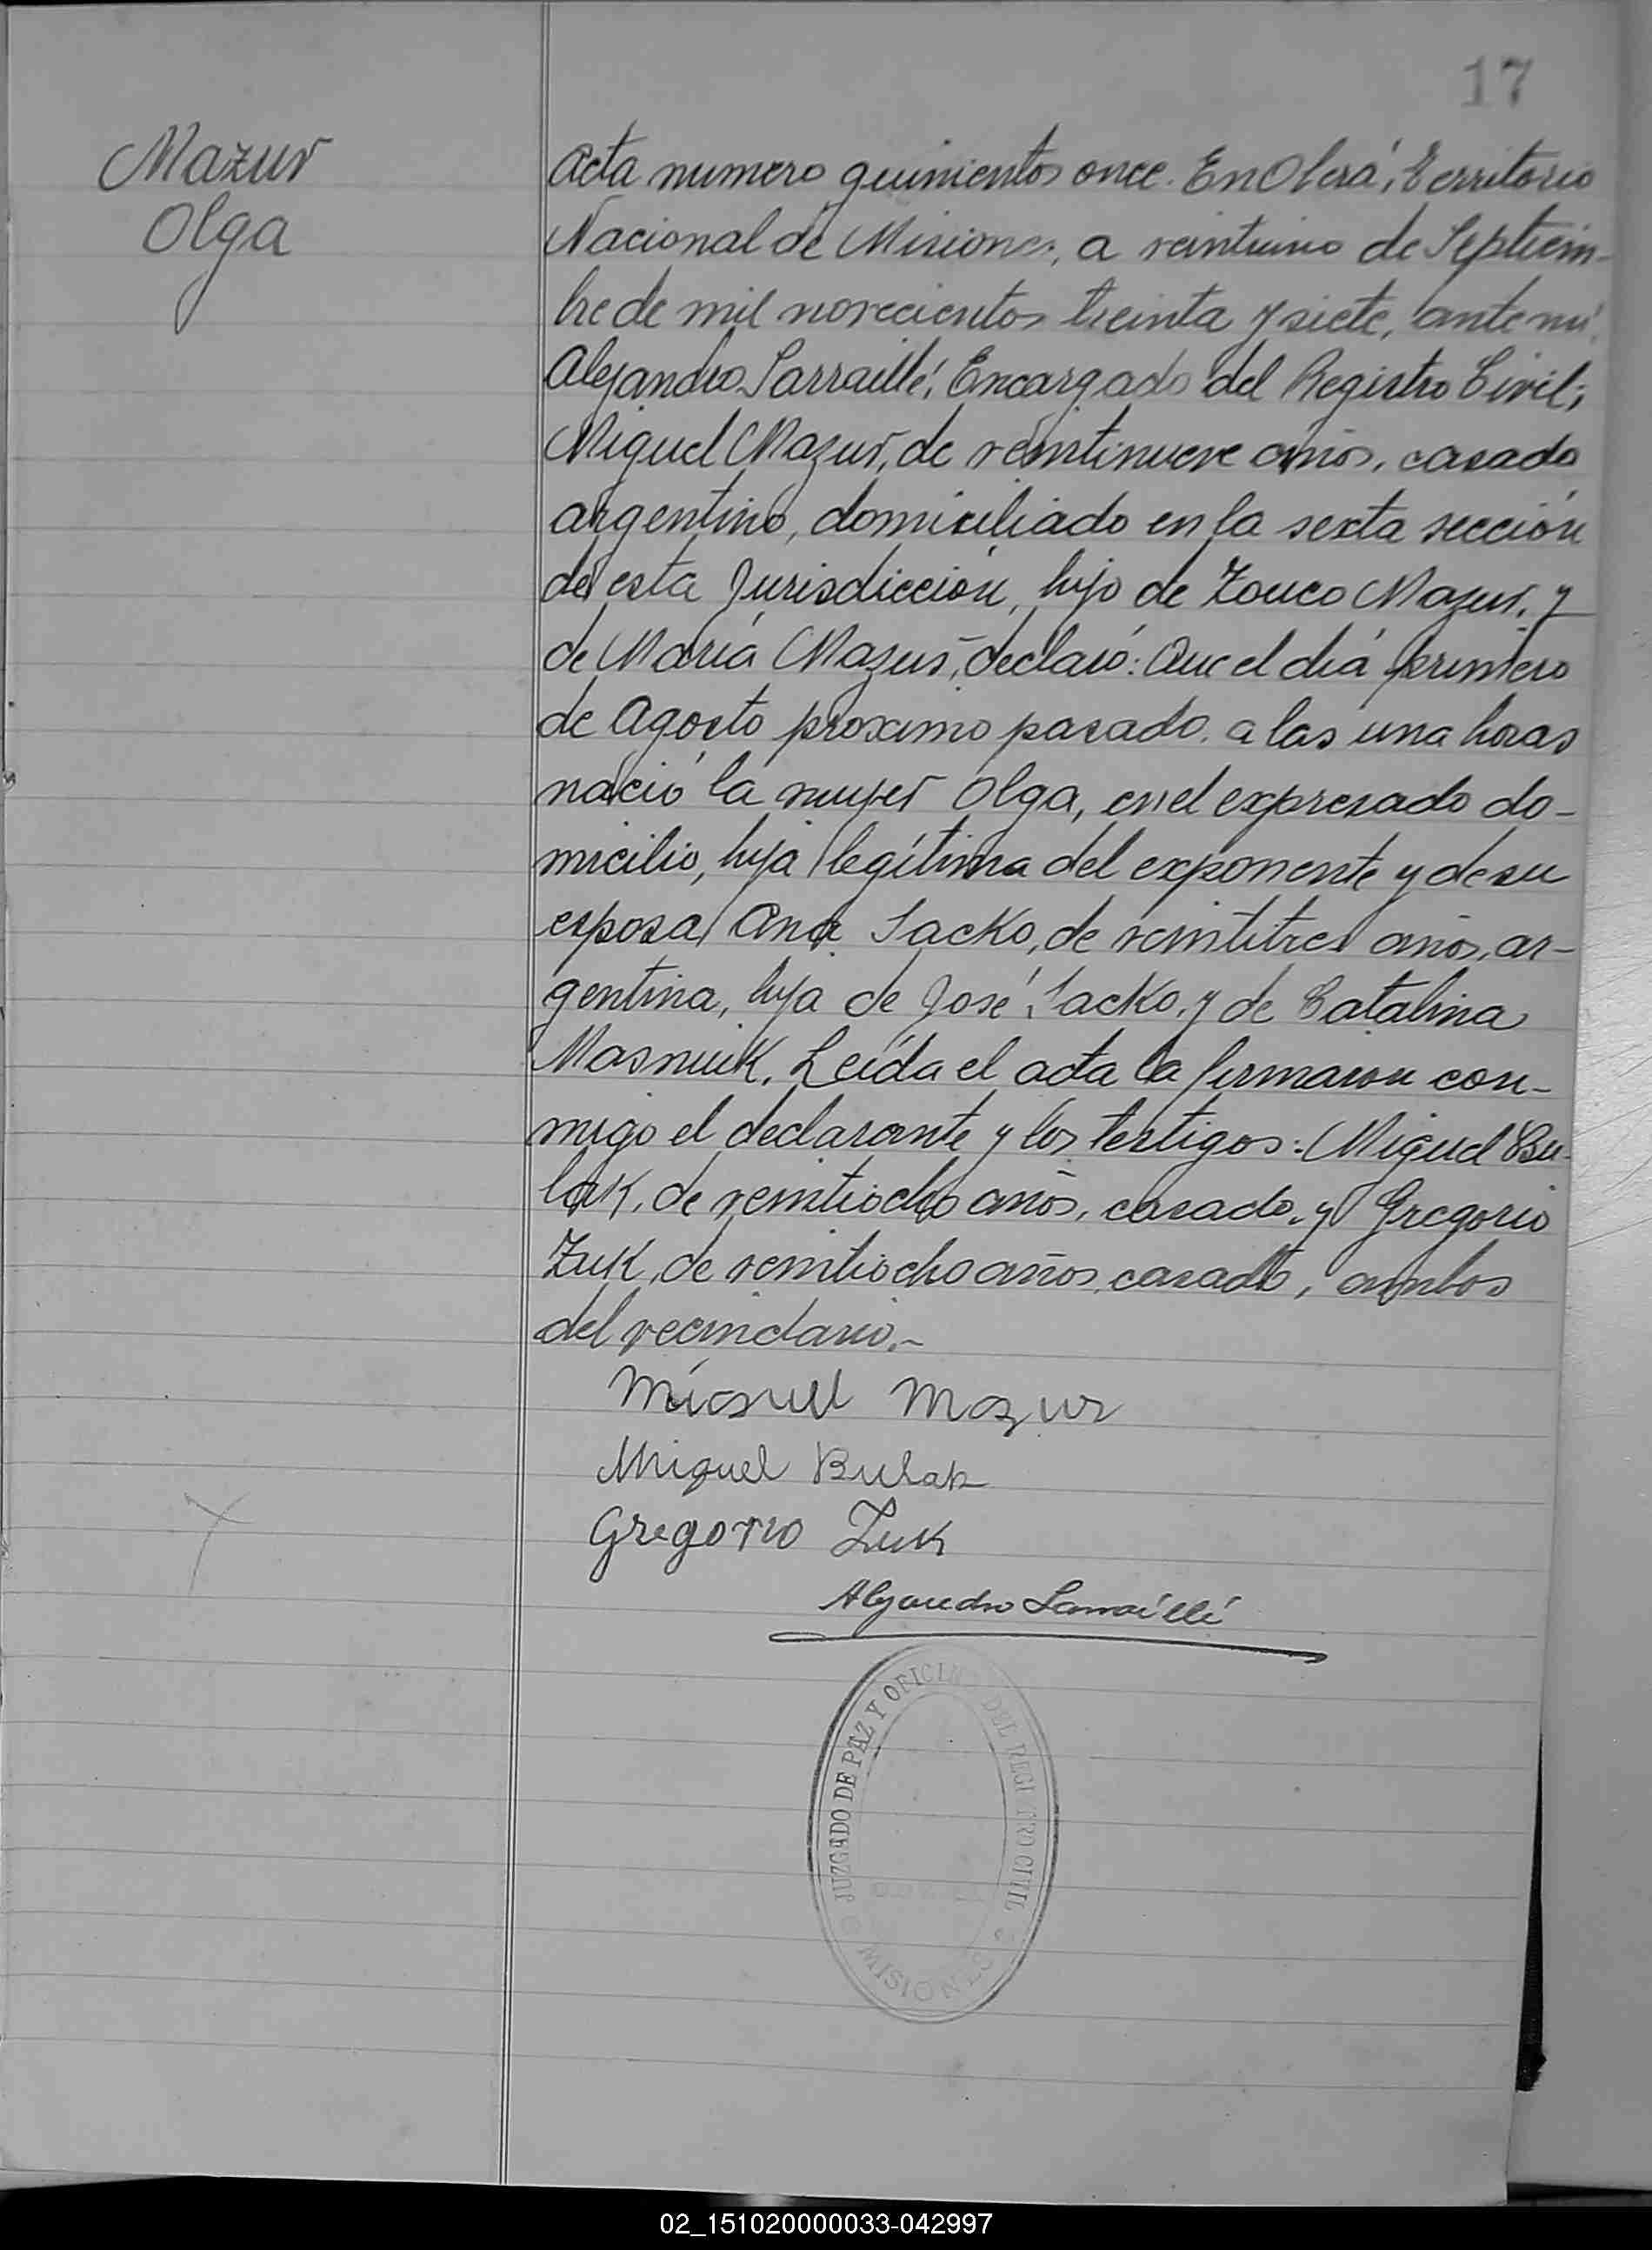 17
Mazur
Olga
Acta numero quinientos once. En Oberá, Territorio
Nacional de Misiones, a veintiuno de Septiem-
bre de mil novecientos treinta y siete, ante mí,
Alejandro Sarraillé, Encargado del Registro Civil;
Miguel Mazur, de veintinueve años, casado
argentino, domiciliado en la sexta sección
de esta Jurisdicción, hijo de Zouco Mazur, y
de María Mazur, declaró: Que el diá primero
de Agosto proximo pasado, a las una horas
nació la mujer Olga, en el expresado do-
micilio, hija legítima del exponente y de su
esposa Ana Sacko, de veintitres años, ar-
gentina, hija de José Sacko, y de Catalina
Masniuk. Leída el acta la firmaron con-
migo el declarante y los testigos: Miguel Bu-
lak, de veintiocho años, casado, y Gregorio
Zuk, de veintiocho años, casado, ambos
del vecindario.-
Miguel Mazur
Miguel Bulak
Gregorio Zuk
Alejandro Sarraillé
JUZGADO DE PAZ Y OFICINA DEL REGISTRO CIVIL
MISIONES
02_151020000033-042997